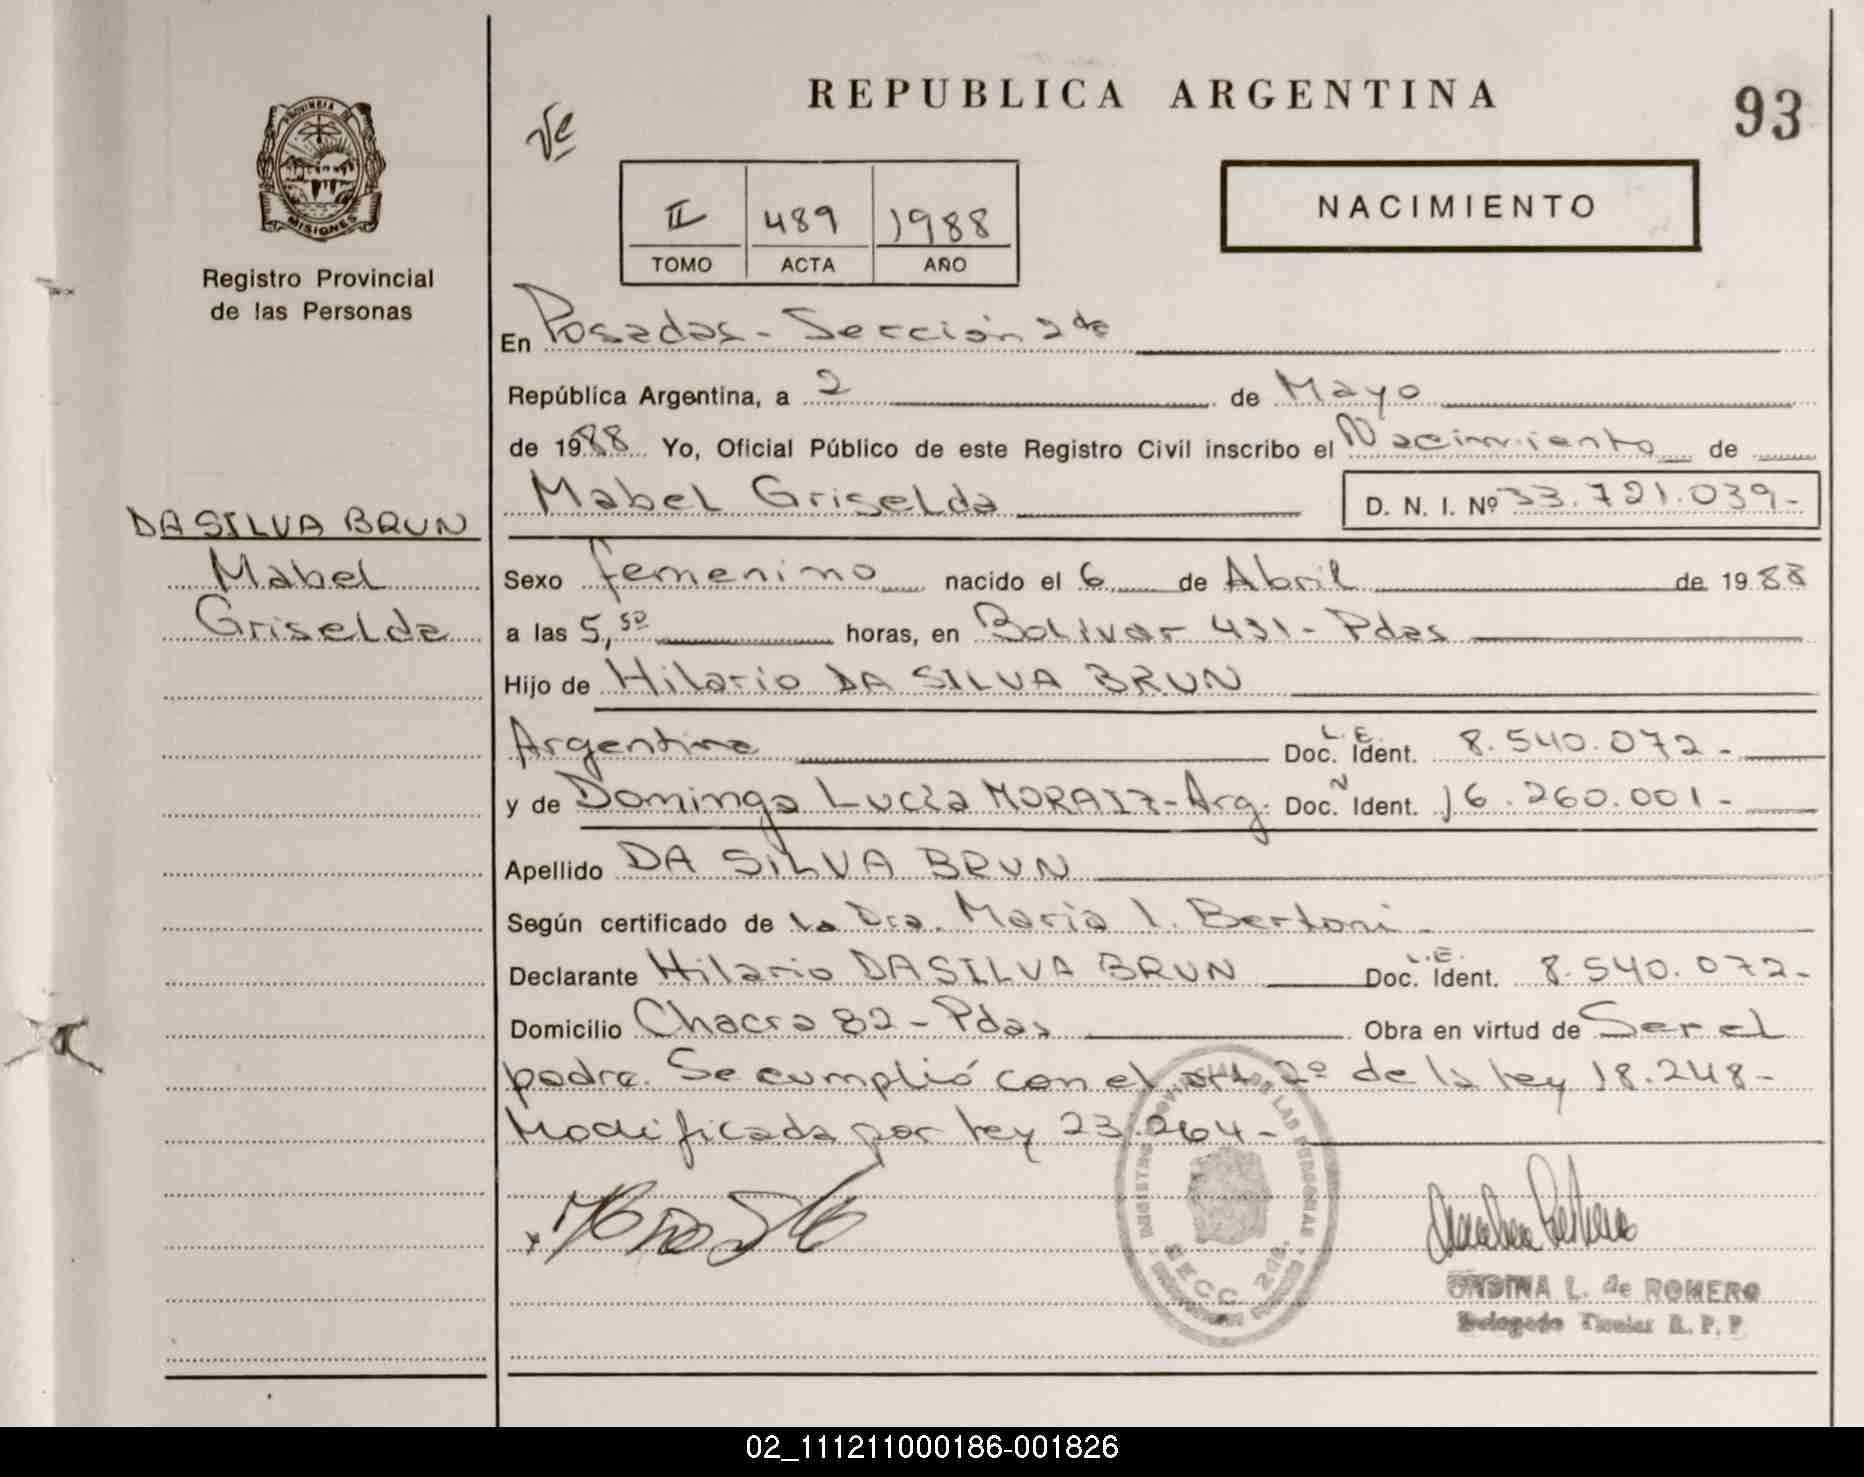 REPUBLICA ARGENTINA
93
PROVINCIA DE
MISIONES
Registro Provincial
de las Personas
II 489 1988
TOMO ACTA AÑO
NACIMIENTO
En Posadas - Sección 2da
República Argentina, a 2 de Mayo
de 1988 Yo, Oficial Público de este Registro Civil inscribo el Nacimiento de
Mabel Griselda D. N. I. Nº 33.721.039-
DA SILVA BRUN
Mabel
Griselda
Sexo femenino nacido el 6 de Abril de 1988
a las 5,50 horas, en Bolivar 431 - Pdas
Hijo de Hilario DA SILVA BRUN
Argentina L.E. Doc. Ident. 8.540.072-
y de Dominga Lucia MORAIZ - Arg. Doc. Ident. 16.260.001-
Apellido DA SILVA BRUN
Según certificado de la Dra. Maria I. Bertoni
Declarante Hilario DA SILVA BRUN L.E. Doc. Ident. 8.540.072-
Domicilio Chacra 82 - Pdas Obra en virtud de Ser el
padre. Se cumplió con el art 2º de la ley 18.248-
Modificada por ley 23.264-
SECC. 2da.
ONDINA L. de ROMERO
Delegado Titular R. P. P
02_111211000186-001826